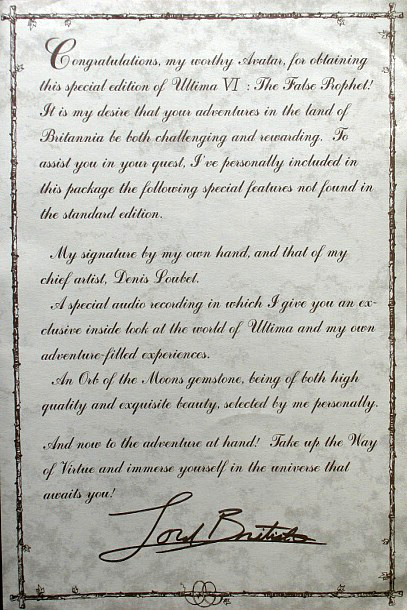 Congratulations, my worthy Avatar, for obtaining
this special edition of Ultima VI : The False Prophet!
It is my desire that your adventures in the land of
Britannia be both challenging and rewarding. To
assist you in your quest, I've personally included in
this package the following special features not found in
the standard edition.
My signature by my own hand, and that of my
chief artist, Denis Loubet.
A special audio recording in which I give you an ex-
clusive inside look at the world of Ultima and my own
adventure-filled experiences.
An Orb of the Moons gemstone, being of both high
quality and exquisite beauty, selected by me personally.
And now to the adventure at hand! Take up the Way
of Virtue and immerse yourself in the universe that
awaits you!
Lord British